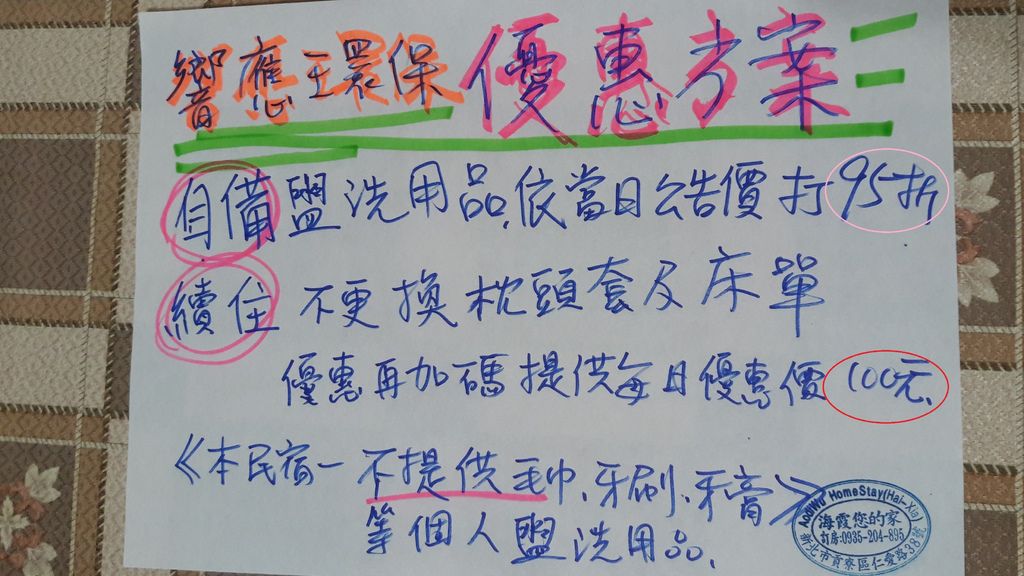 響應王環保優惠方案
自備盥洗用品,依當日公告價打95折
續住 不更換枕頭套及床單
優惠再加碼提供每日優惠價100元.
《本民宿一不提供毛巾、牙刷、牙膏》
等個人盥洗用品.
HomeStay(Hai-Xia)
海霞您的家
訂房:0935-204-895
新北市貢寮區仁愛路38號